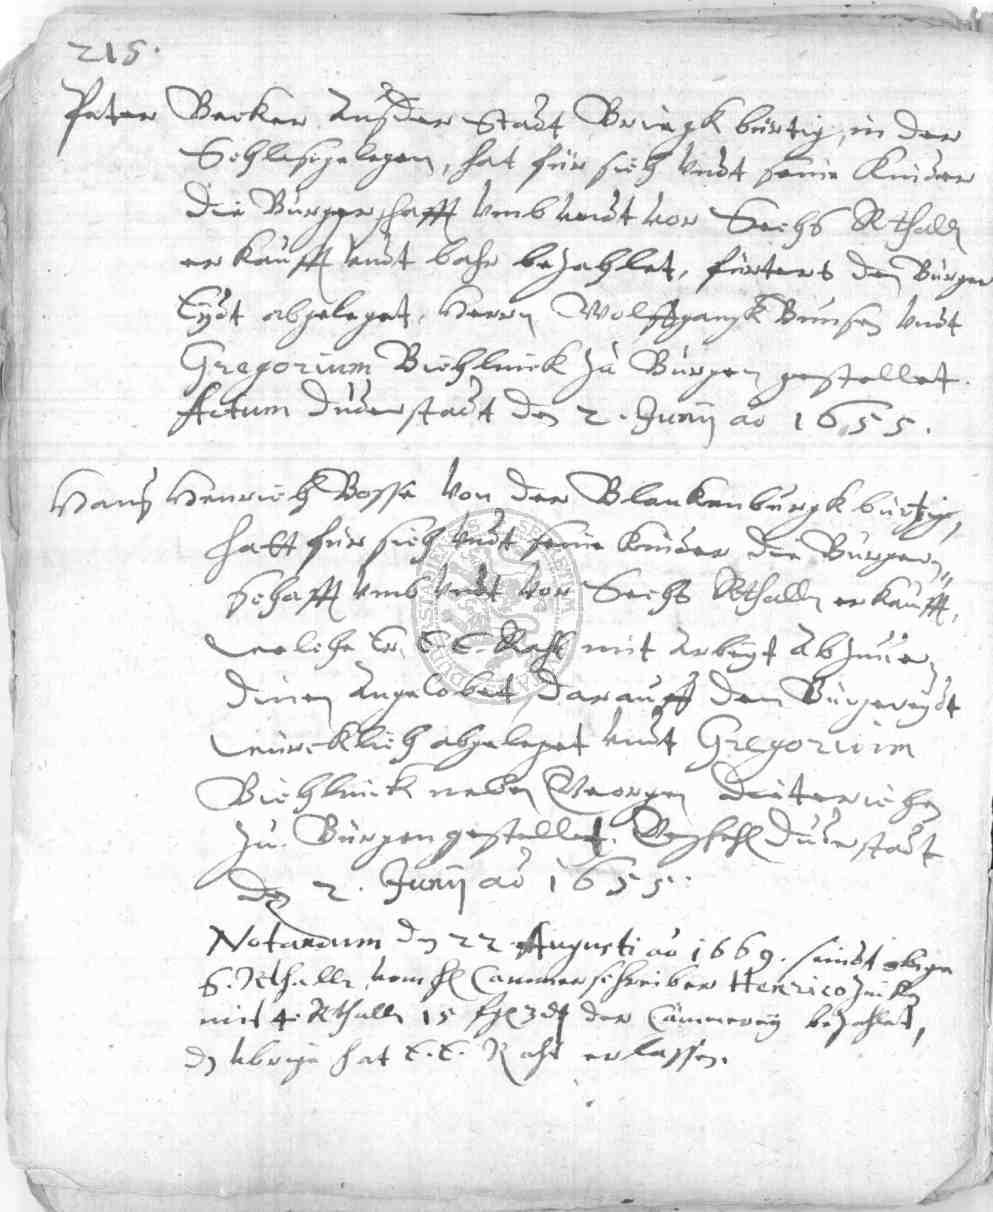 215.
Peter Becker Außder Stadt Briegk bürtig, in der
Schlesi gelegen, hat für sich undt seine Kinder
die Bürgerschafft umb undt vor Sechs Rthall
erkaufft undt bahr bezahlet, fürters den Bürger
Eydt abgeleget, Herrn Wolffgangk Bunsen undt
Gregorium Bichlinick zu Bürgen gestellet.
Actum Duderstadt den 2. Junij ao 1655.
Hanß Henrich Bosse von der Blankenburgk bürtig,
hatt für sich undt seine Kinder die Bürger-
schafft umb undt vor Sechs Rthalln erkaufft,
welche E. E. Raht mit arbeyt abzuver-
dinen angelobet darauff den Bürgereydt
würcklich abgeleget undt Gregorium
Bichlinick neben Georgen Dieterichen
zu Bürgen gestellet. Duderstadt
den 2. Junij ao 1655.
Notandum den 22 Augusti ao 1669. seindt obige
6. Rthall vom H Cammerschreiber Henrico
mit 4. Rthalln 15 der Cämmerey bezahlet,
dz übrige hat E. E. Raht erlassen.